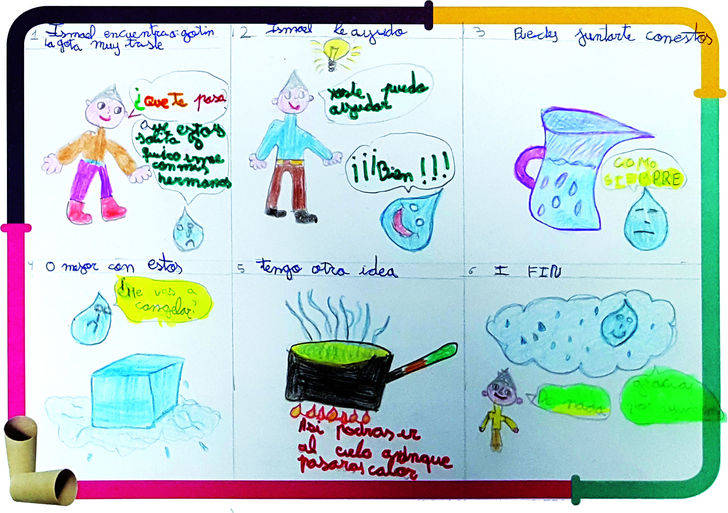 1 Ismael encuentra a gotin
la gota muy triste
¿Que te pasa
que estoy
solita y
quiero irme
con mis
hermanos
2 Ismael le ayuda
yo te puedo
ayudar
¡¡¡Bien!!!
3 Puedes juntarte con estos
COMO
SIEMPRE
4 O mejor con estos
¡Me vas a
congelar!
5 tengo otra idea
Asi podras ir
al cielo aunque
pasaras calor
6 I FIN
De nada
gracias
por